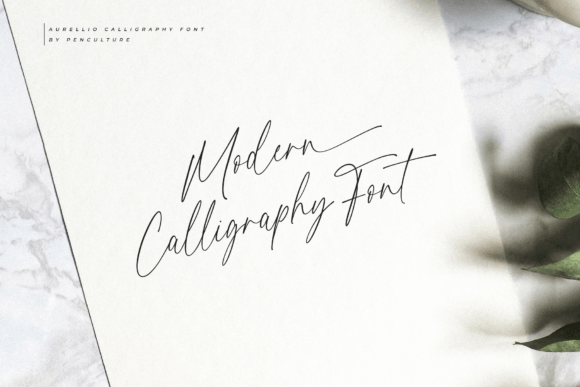 AURELLIO CALLIGRAPHY FONT
BY PENCULTURE
Modern
Calligraphy Font